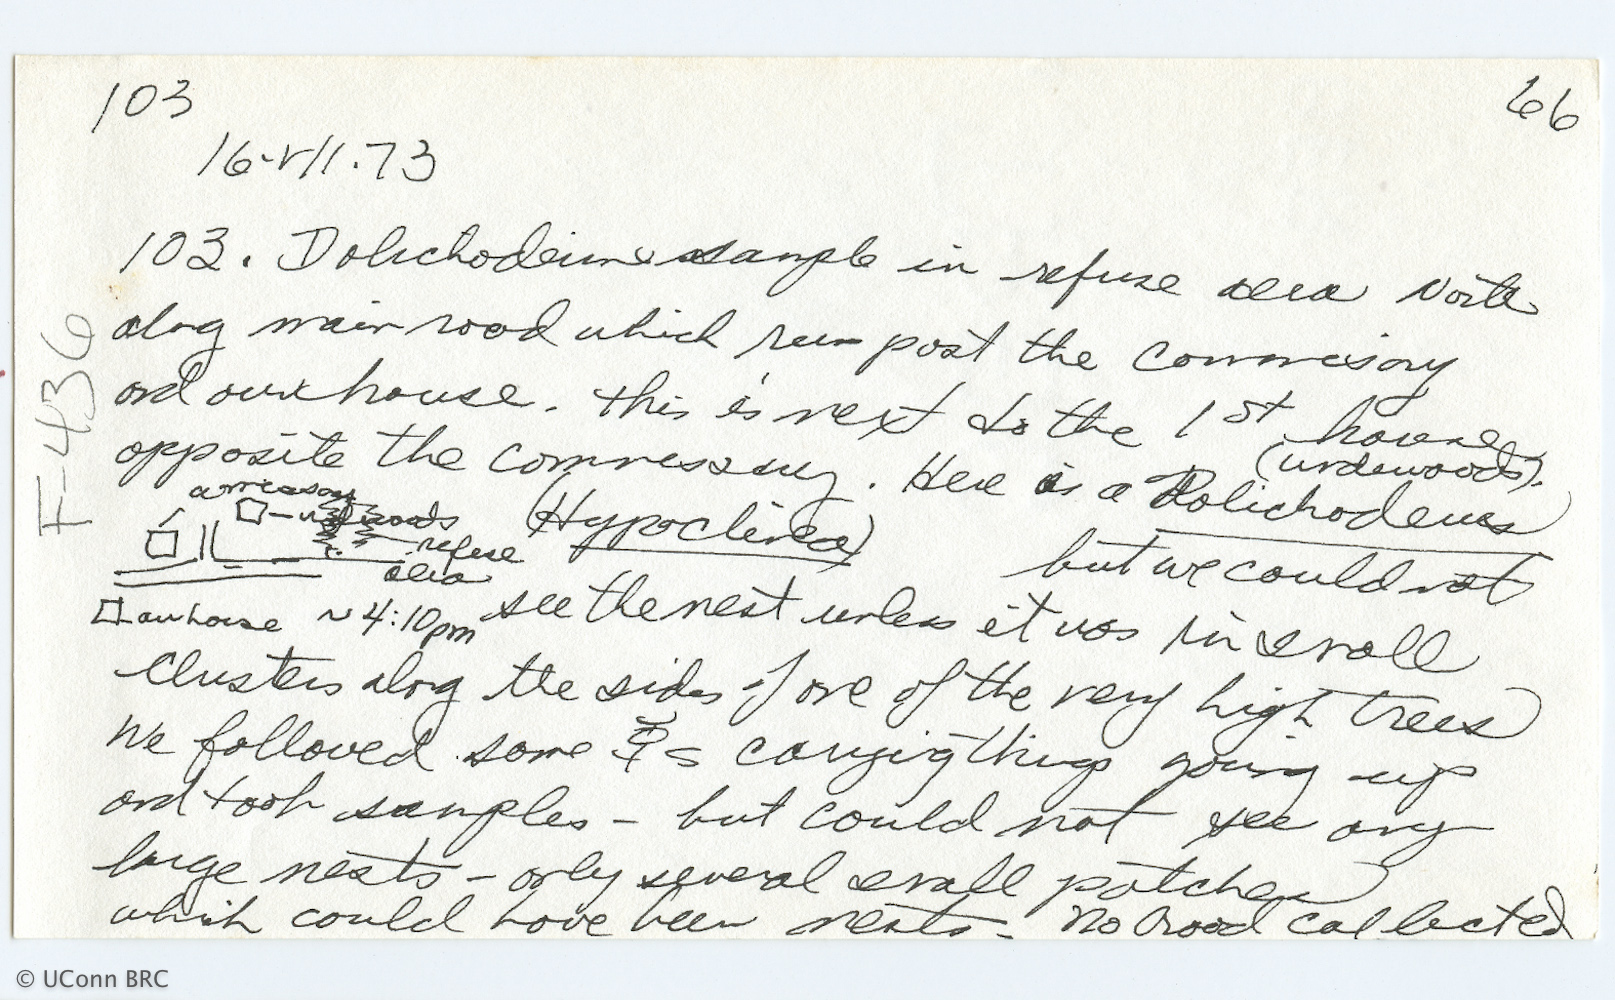 103
66
16-VII.73
103. Dolichoderine sample in refuse area North
along main road which runs past the commissary
and our house. This is next to the 1st house
(underwoods).
opposite the commissary. Here is a Dolichoderus
(Hypoclinea)
but we could not
see the nest unless it was in small
clusters along the sides of one of the very high trees
We followed some ☿s carrying things going up
and took samples - but could not see any
large nests - only several small patches
which could have been nests. No brood collected
F-436
commissary
□-underwoods
refuse
area
our house ~ 4:10pm
© UConn BRC